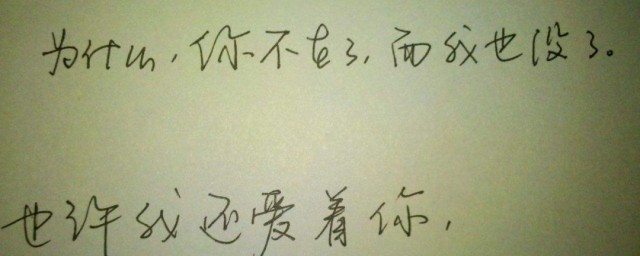 为什么,你不在了,而我也没了。
也许我还爱着你,